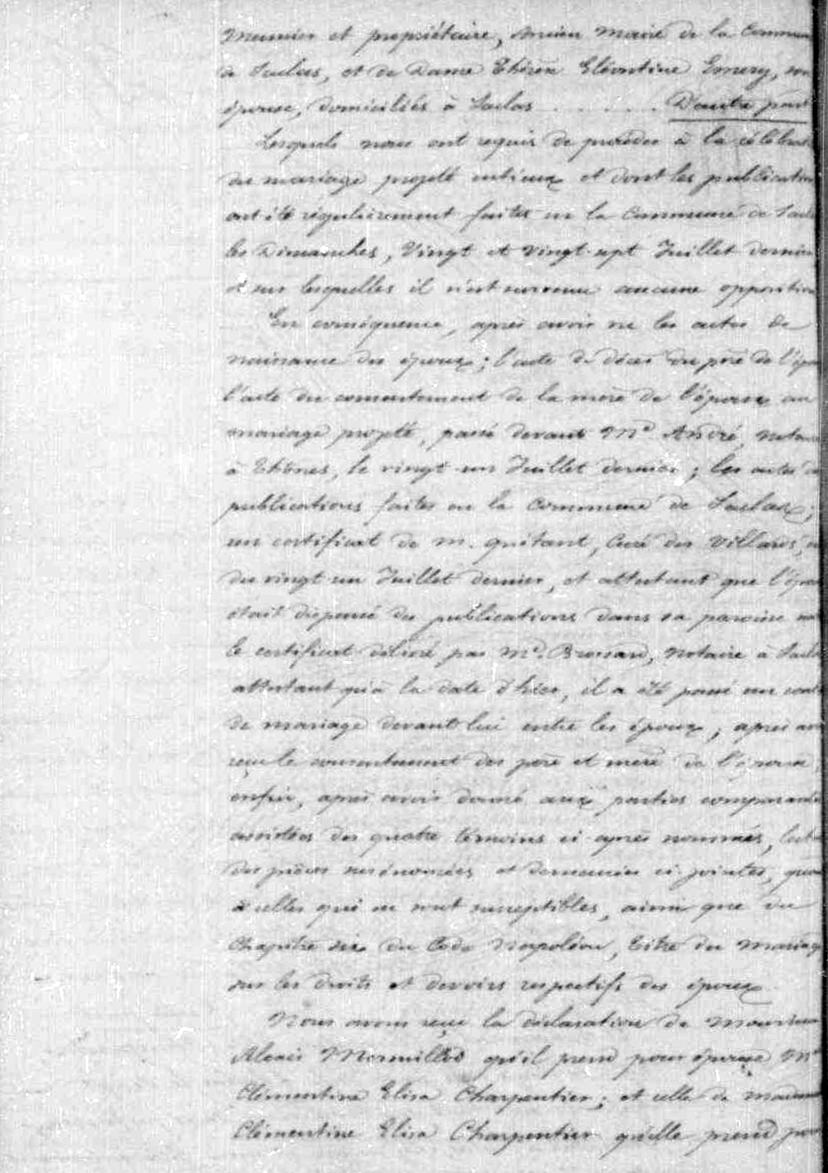 Meunier et propriétaire, ancien Maire de la Commun
de Saclas, et de Dame Thérèse Eléontine Emery, son
épouse, domiciliés à Saclas . . . . . . D'autre part
Lesquels nous ont requis de procéder à la célébrat
du mariage projeté entr'eux et dont les publication
ont été régulièrement faites en la Commune de Sacla
les Dimanches, Vingt et Vingt-sept Juillet dernier
et sur lesquelles il n'est survenu aucune opposition
En conséquence, après avoir vu les actes de
naissance des époux; l'acte de décès du père de l'épou
l'acte du consentement de la mère de l'époux au
mariage projeté, passé devant Me André, notaire
à Thônes, le vingt-un Juillet dernier; les actes de
publications faites en la Commune de Saclas;
un certificat de M. Quétant, Curé des Villards,
du vingt un Juillet dernier, et attestant que l'épou
était dispensé des publications dans sa paroisse
le certificat délivré par Me Brossard, Notaire à Sacla
attestant qu'à la date d'hier, il a été passé un cont
de mariage devant lui entre les époux; après av
reçu le consentement des père et mère de l'épouse
enfin, après avoir donné aux parties comparante
assistées des quatre témoins ci-après nommés, lect
des pièces susénoncées et demeurées ci-jointes, quan
à celles qui en sont susceptibles, ainsi que du
Chapitre six du Code Napoléon, titre du mariage
sur les droits et devoirs respectifs des époux.
Nous avons reçu la déclaration de Monsieur
Alexis Mermillod qu'il prend pour épouse Me
Clémentine Elisa Charpentier; et celle de madem
Clémentine Elisa Charpentier qu'elle prend pour